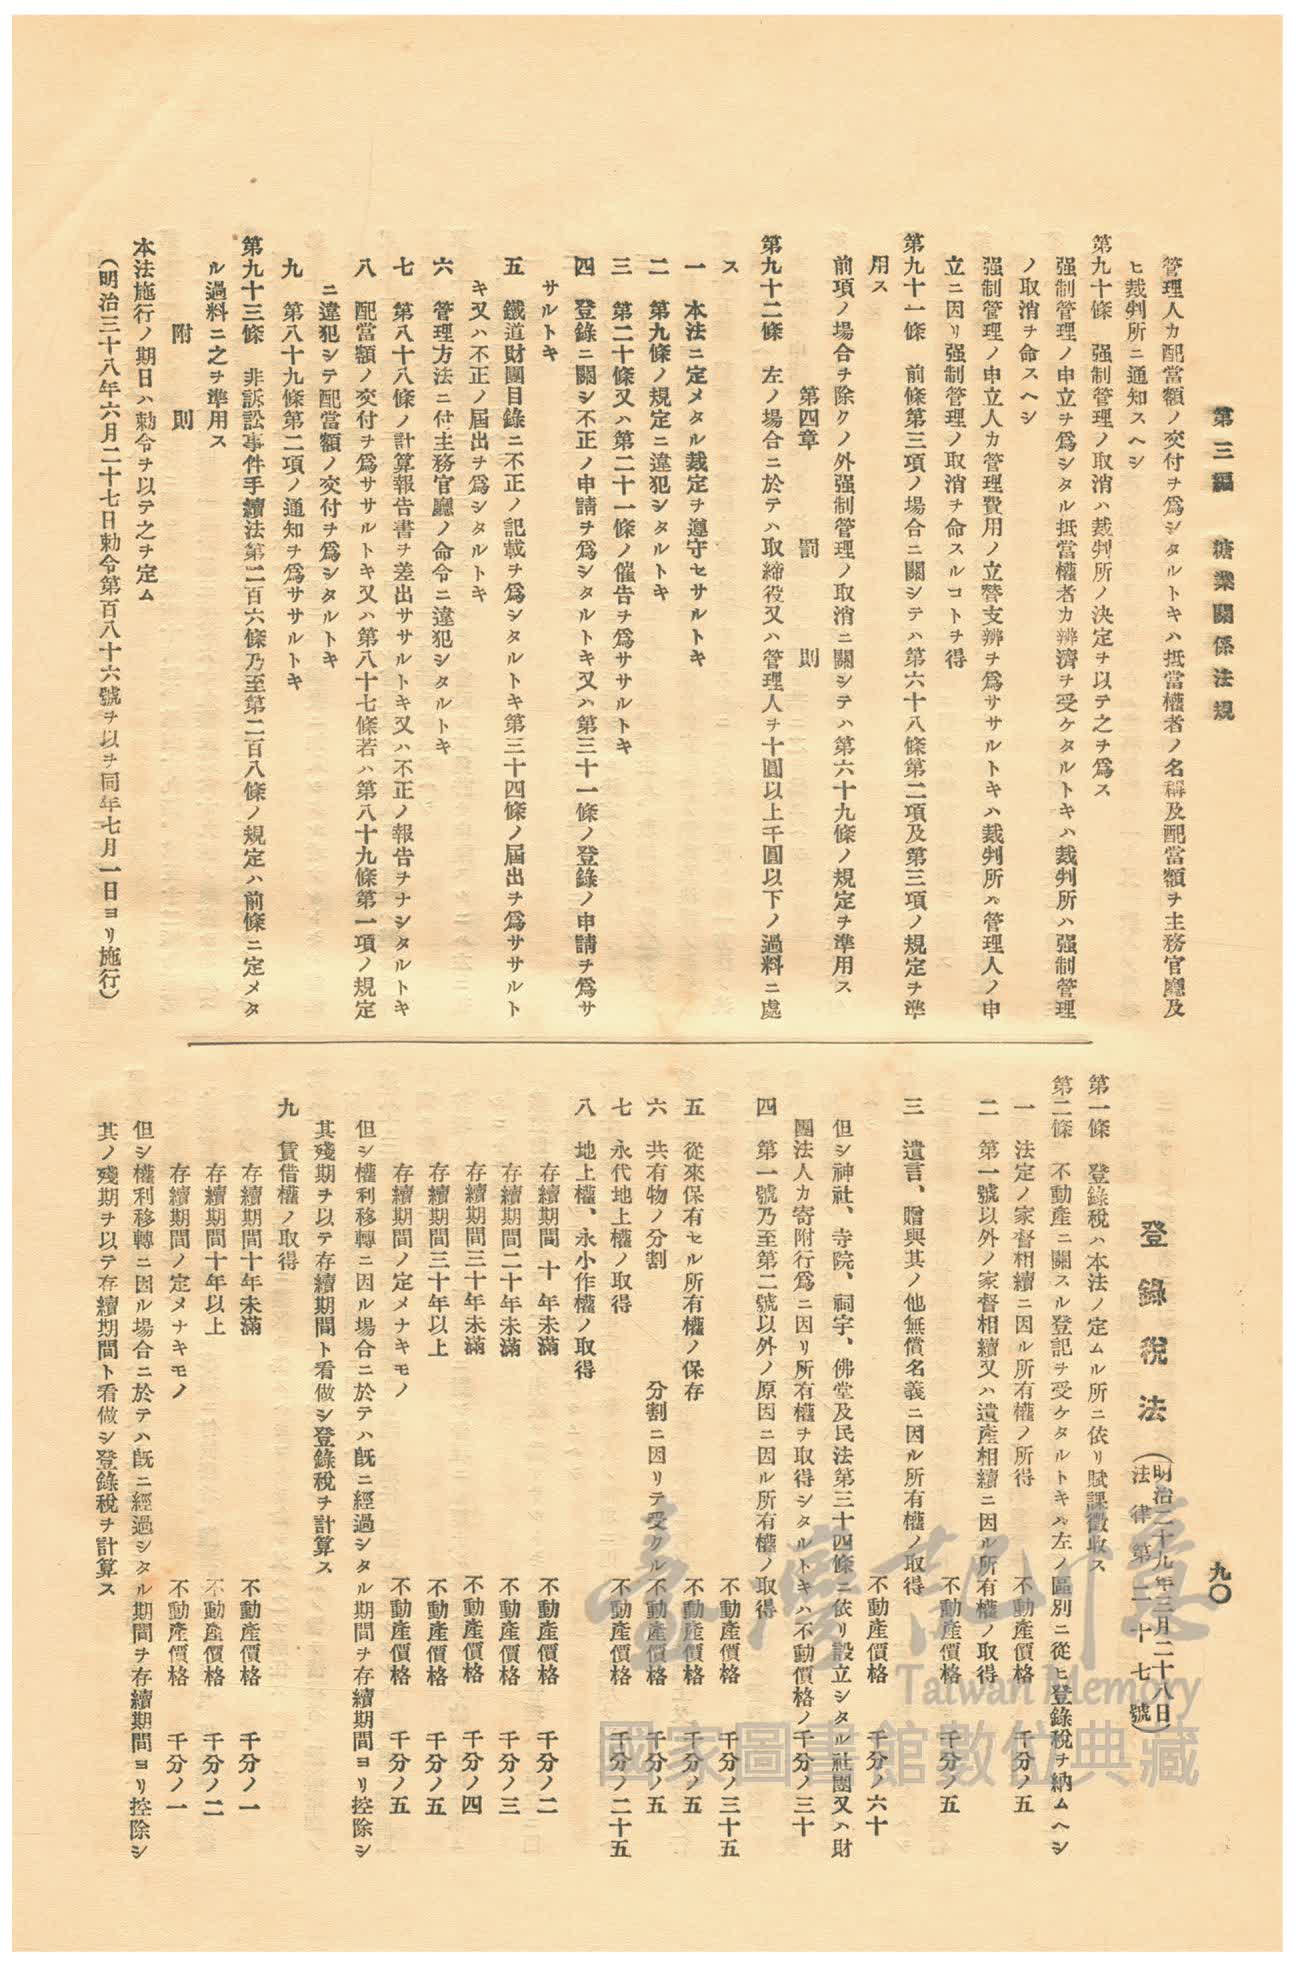 第三編　糖業關係法規
九〇
管理人カ配當額ノ交付ヲ爲シタルトキハ抵當權者ノ名稱及配當額ヲ主務官廳及
ヒ裁判所ニ通知スヘシ
第九十條　强制管理ノ取消ハ裁判所ノ決定ヲ以テ之ヲ爲ス
强制管理ノ申立ヲ爲シタル抵當權者カ辨濟ヲ受ケタルトキハ裁判所ハ强制管理
ノ取消ヲ命スヘシ
强制管理ノ申立人カ管理費用ノ立替支辨ヲ爲ササルトキハ裁判所ハ管理人ノ申
立ニ因リ强制管理ノ取消ヲ命スルコトヲ得
第九十一條　前條第三項ノ場合ニ關シテハ第六十八條第二項及第三項ノ規定ヲ準
用ス
前項ノ場合ヲ除クノ外强制管理ノ取消ニ關シテハ第六十九條ノ規定ヲ準用ス
第四章　罰則
第九十二條　左ノ場合ニ於テハ取締役又ハ管理人ヲ十圓以上千圓以下ノ過料ニ處
ス
一　本法ニ定メタル裁定ヲ遵守セサルトキ
二　第九條ノ規定ニ違犯シタルトキ
三　第二十條又ハ第二十一條ノ催告ヲ爲ササルトキ
四　登錄ニ關シ不正ノ申請ヲ爲シタルトキ又ハ第三十一條ノ登錄ノ申請ヲ爲サ
サルトキ
五　鐵道財團目錄ニ不正ノ記載ヲ爲シタルトキ第三十四條ノ屆出ヲ爲ササルト
キ又ハ不正ノ屆出ヲ爲シタルトキ
六　管理方法ニ付主務官廳ノ命令ニ違犯シタルトキ
七　第八十八條ノ計算報告書ヲ差出ササルトキ又ハ不正ノ報告ヲナシタルトキ
八　配當額ノ交付ヲ爲ササルトキ又ハ第八十七條若ハ第八十九條第一項ノ規定
ニ違犯シテ配當額ノ交付ヲ爲シタルトキ
九　第八十九條第二項ノ通知ヲ爲ササルトキ
第九十三條　非訴訟事件手續法第二百六條乃至第二百八條ノ規定ハ前條ニ定メタ
ル過料ニ之ヲ準用ス
附則
本法施行ノ期日ハ勅令ヲ以テ之ヲ定ム
（明治三十八年六月二十七日勅令第百八十六號ヲ以ヲ同年七月一日ヨリ施行）
登錄稅法（明治二十九年三月二十八日
法律第二十七號）
第一條　登錄稅ハ本法ノ定ムル所ニ依リ賦課徵收ス
第二條　不動產ニ關スル登記ヲ受ケタルトキハ左ノ區別ニ從ヒ登錄稅ヲ納ムヘシ
一　法定ノ家督相續ニ因ル所有權ノ所得　不動產價格　千分ノ五
二　第一號以外ノ家督相續又ハ遺產相續ニ因ル所有權ノ取得
不動產價格　千分ノ五
三　遺言、贈與其ノ他無償名義ニ因ル所有權ノ取得
不動產價格　千分ノ六十
但シ神社、寺院、祠宇、佛堂及民法第三十四條ニ依リ設立シタル社團又ハ財
團法人カ寄附行爲ニ因リ所有權ヲ取得シタルトキハ不動價格ノ千分ノ三十
四　第一號乃至第二號以外ノ原因ニ因ル所有權ノ取得
不動產價格　千分ノ三十五
五　從來保有セル所有權ノ保存　不動產價格　千分ノ五
六　共有物ノ分割　分割ニ因リテ受クル不動產價格　千分ノ五
七　永代地上權ノ取得　不動產價格　千分ノ二十五
八　地上權、永小作權ノ取得
存續期間　十年未滿　不動產價格　千分ノ二
存續期間二十年未滿　不動產價格　千分ノ三
存續期間三十年未滿　不動產價格　千分ノ四
存續期間三十年以上　不動產價格　千分ノ五
存續期間ノ定メナキモノ　不動產價格　千分ノ五
但シ權利移轉ニ因ル場合ニ於テハ既ニ經過シタル期間ヲ存續期間ヨリ控除シ
其殘期ヲ以テ存續期間ト看做シ登錄稅ヲ計算ス
九　賃借權ノ取得
存續期間十年未滿　不動產價格　千分ノ一
存續期間十年以上　不動產價格　千分ノ二
存續期間ノ定メナキモノ　不動產價格　千分ノ一
但シ權利移轉ニ因ル場合ニ於テハ既ニ經過シタル期間ヲ存續期間ヨリ控除シ
其ノ殘期ヲ以テ存續期間ト看做シ登錄稅ヲ計算ス
臺灣記憶
Taiwan Memory
國家圖書館數位典藏